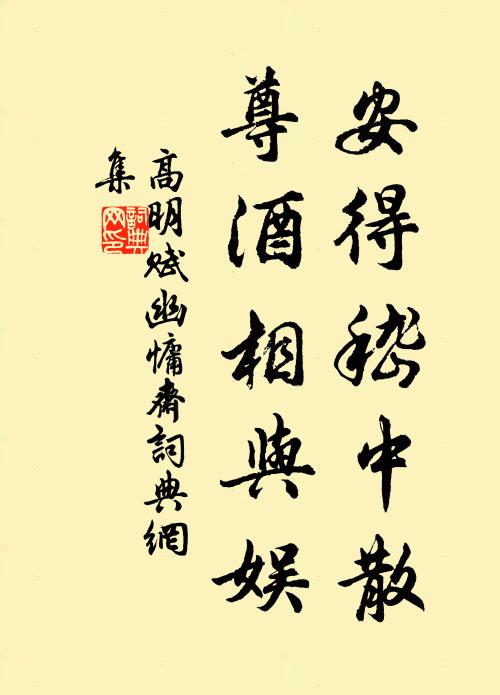 安得嵇中散
尊酒相與娱
高明賦幽慵齋詞典網
集
詞典网印